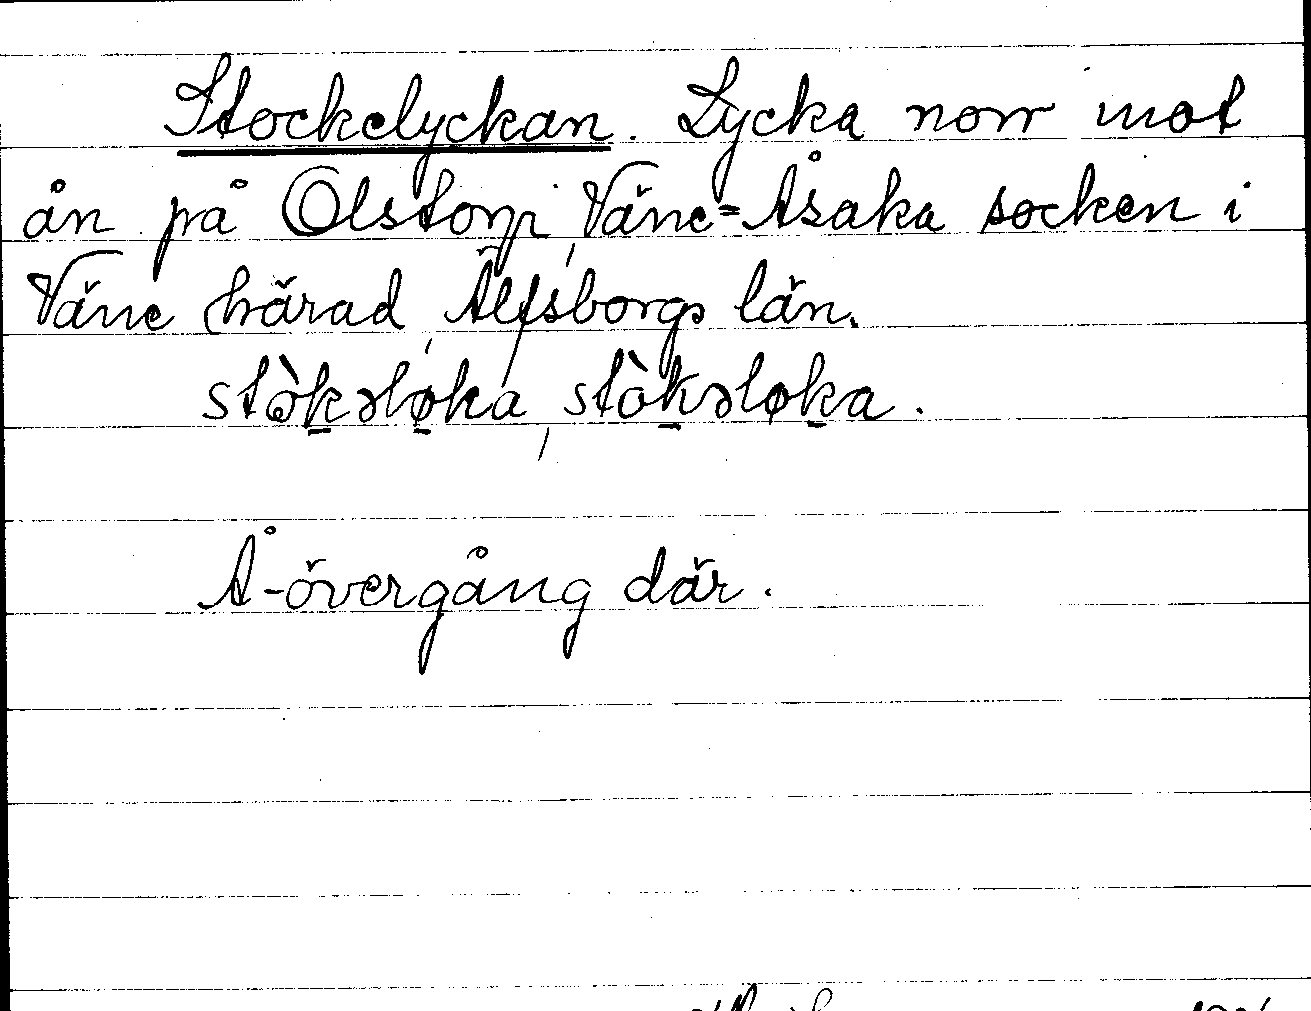 Stockelyckan. Lycka norr mot
ån på Olstorp, Väne-Åsaka socken i
Väne härad, Älfsborgs län.
stòkəløka, stòkəløka.
Å-övergång där.